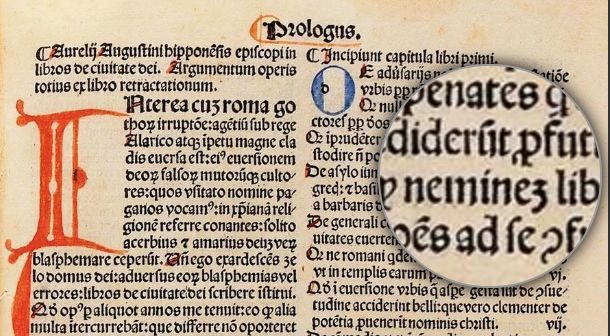 Prologus.
¶ Aurelij Augustini hipponēsis episcopi in
libros de ciuitate dei. Argumentum operis
totius ex libro retractationum.
INterea cuꝫ roma go
thoꝝ irruptōe: agētiū sub rege
Alarico atqꝫ īpetu magne cla
dis euersa est: eiꝰ euersionem
deoꝝ falsoꝝ mutorūqꝫ culto
res: quos vsitato nomine pa
ganos vocamꝰ: in xp̄ianā reli
gionē referre conantes: solito
acerbius ⁊ amarius deū veꝝ
blasphemare ceperūt. Un̄ ego exardescēs ze
lo domus dei: aduersus eoꝝ blasphemias vel
errores: libros de ciuitate dei scribere īstitui.
Qd̄ opꝰ ꝑ aliquot annos me tenuit: eo ꝙ alia
multa ītercurrebāt: que differre nō oporteret
¶ Incipiunt capitula libri primi.
OE aduersarijs
vrbis
Qꝙ null
ctores
Qꝙ īprudēter
stodire nō
De asylo iun
greꝫ: ⁊ basil
a barbaris
De generali
uitates euerter
Qꝙ ne romani qd
vt in templis earum vij.
Qꝙ ī euersione vrbis qͣ aspere
tudine acciderint belli: que vero clementer de
potētia ꝓuenerit nominis christi vij.
penates q
diderūt ꝓfut
nemineꝫ lib
oēs ad se ꝯfu